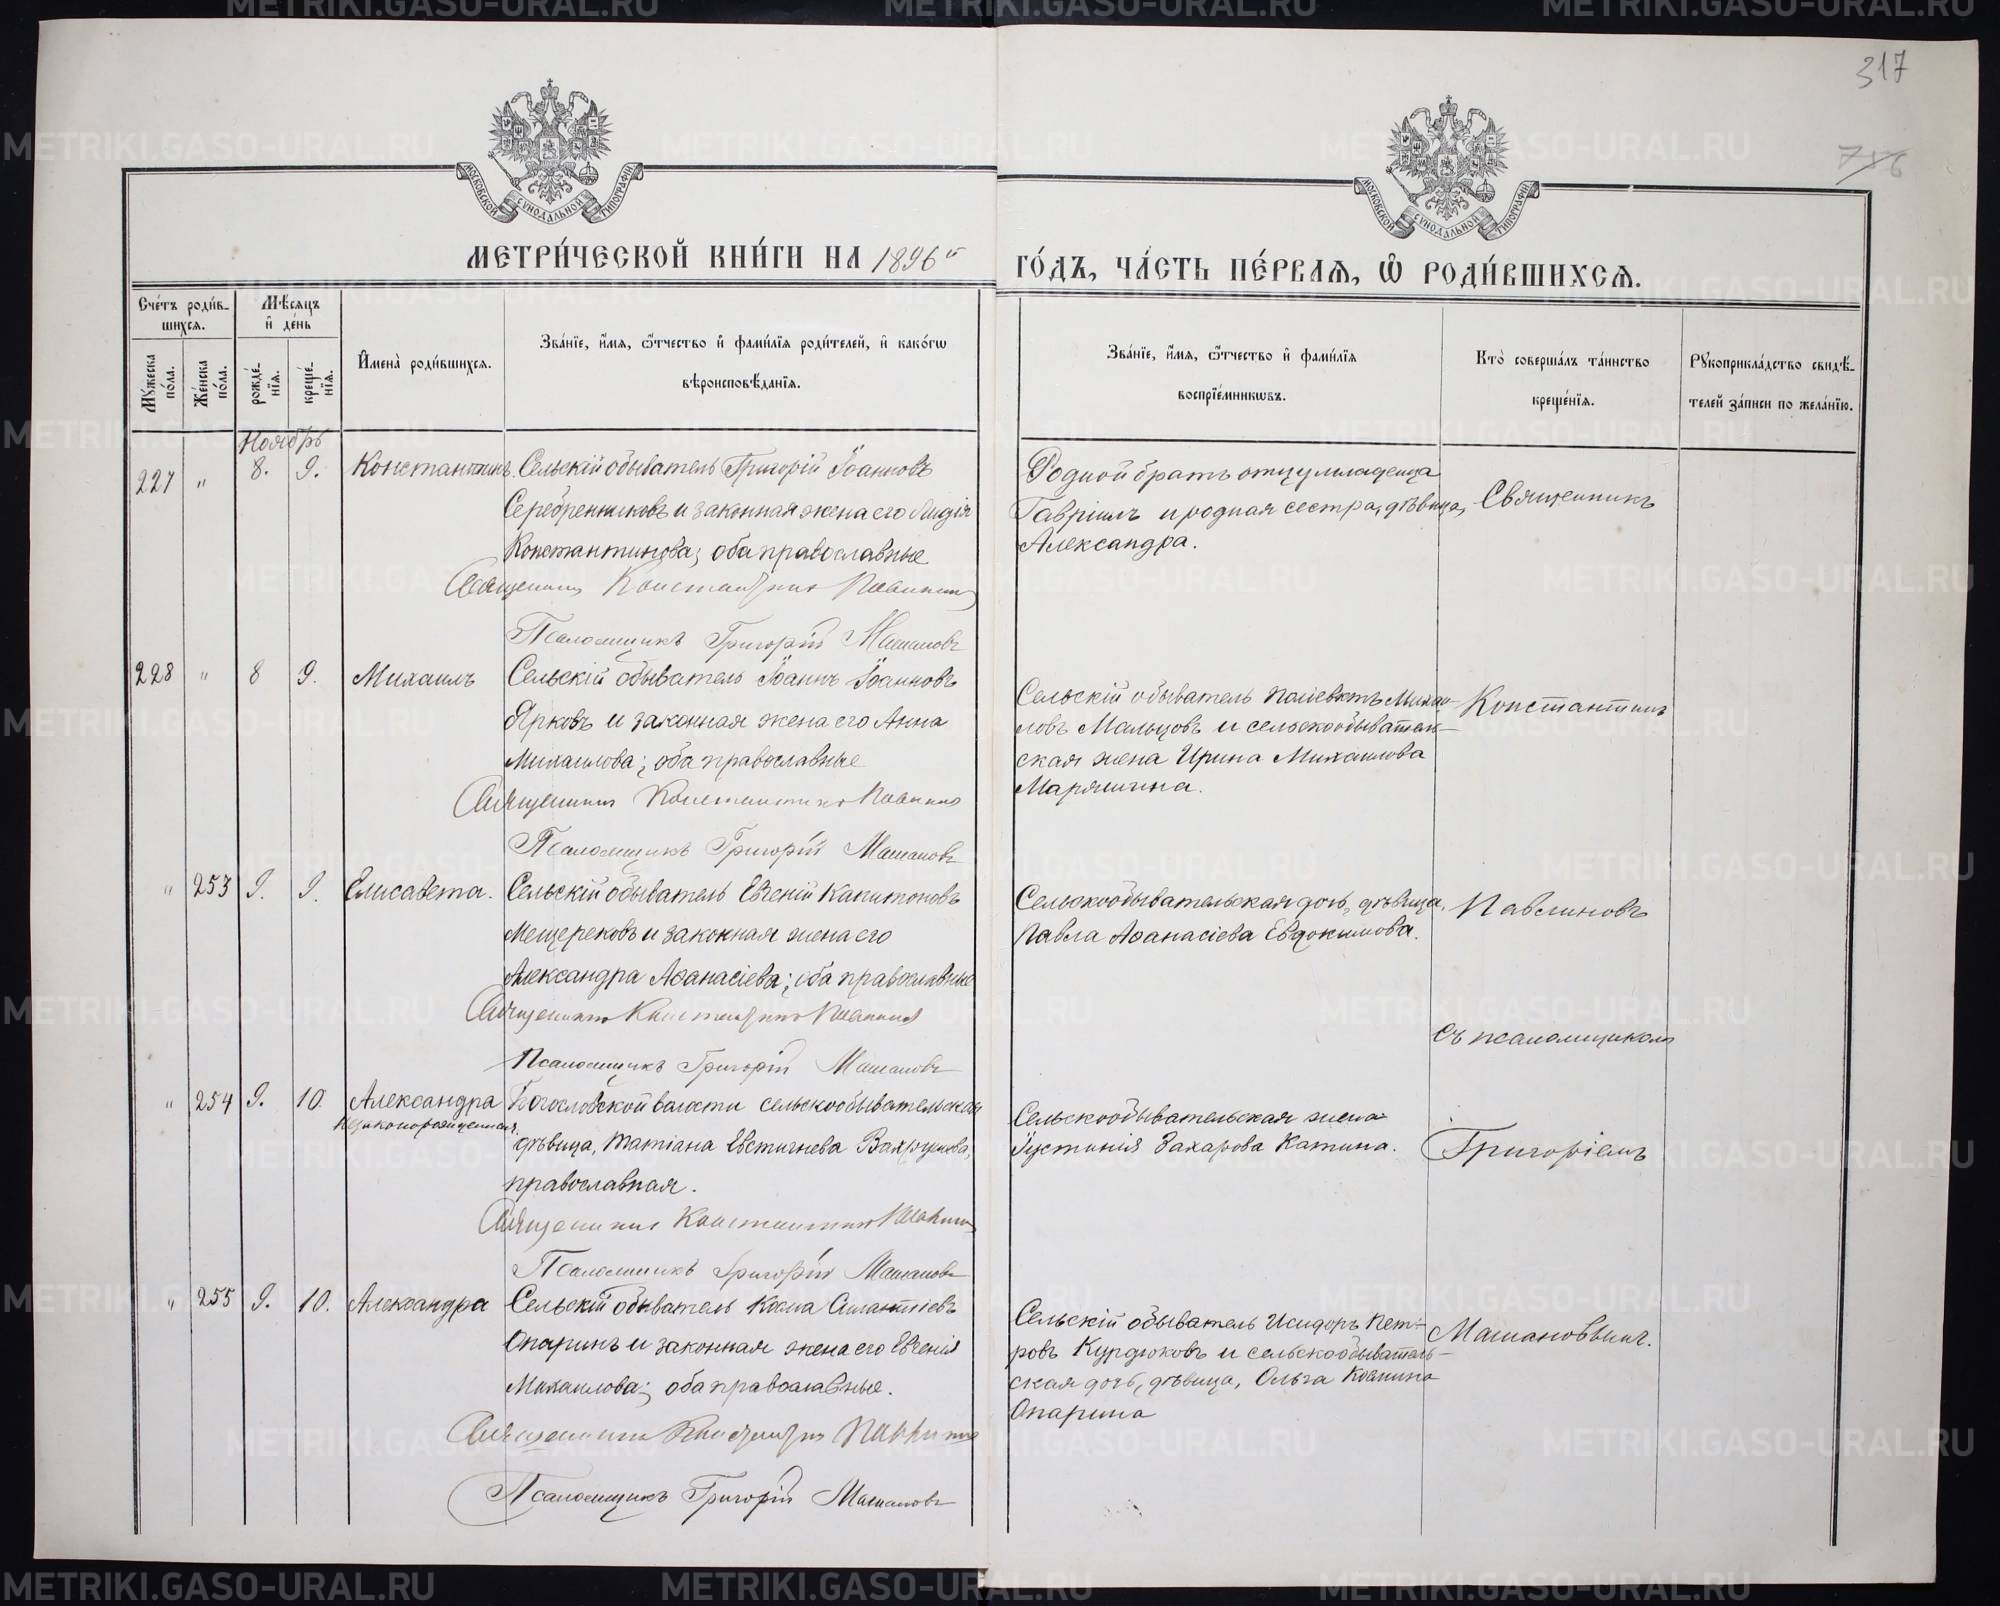 317
МОСКОВСКОЙ СѴНОДАЛЬНОЙ ТИПОГРАФІИ
МОСКОВСКОЙ СѴНОДАЛЬНОЙ ТИПОГРАФІИ
МЕТРИ́ЧЕСКОЙ КНИ́ГИ НА 1896й
ГО́ДЪ, ЧА́СТЬ ПЕ́РВАѦ, Ѽ РОДИ́ВШИХСѦ.
Сче́тъ роди́в-
шихсѧ.
Мѣ́сѧцъ
и де́нь
Мꙋ́жеска по́ла.
Же́нска по́ла.
рожде́-нїѧ.
креще́-нїѧ.
И҆мена̀ роди́вшихсѧ.
Зва́нїе, и҆́мѧ, ѻ҆́тчество и҆ фами́лїѧ роди́телей, и҆ како́гѡ
вѣроисповѣ́данїѧ.
Зва́нїе, и҆́мѧ, ѻ҆́тчество и҆ фами́лїѧ
воспрїе́мникѡвъ.
Кто̀ соверша́лъ та́инство
креще́нїѧ.
Рꙋкоприкла́дство свидѣ́-
телей за́писи по жела́нїю.
Ноябрь
227 " 8. 9. Константинъ. Сельскій обыватель Григорій Іоанновъ
Серебренниковъ и законная жена его Лидія
Константинова; оба православные
Священникъ Константинъ Павлиновъ
Псаломщикъ Григорій Машановъ
Родной братъ отцу младенца
Гавріилъ и родная сестра, дѣвица,
Александра.
Священникъ
228 " 8 9. Михаилъ Сельскій обыватель Іоаннъ Іоанновъ
Ярковъ и законная жена его Анна
Михаилова; оба православные
Священникъ Константинъ Павлиновъ
Псаломщикъ Григорій Машановъ
Сельскій обыватель Поліевктъ Михаи-
ловъ Мальцовъ и сельскообыватель-
ская жена Ирина Михаилова
Константинъ
" 253 9. 9. Елисавета. Сельскій обыватель Евгеній Капитоновъ
Мещерековъ и законная жена его
Александра Аѳанасіева; оба православные
Священникъ Константинъ Павлиновъ
Псаломщикъ Григорій Машановъ
Сельскообывательская дочь, дѣвица,
Павла Аѳанасіева Евдокимова.
Павлиновъ
съ псаломщикомъ
" 254 9. 10. Александра Богословской волости сельскообывательская
незаконорожденная.
дѣвица, Татіана Евстигнева Вахрушева,
православная.
Священникъ Константинъ Павлиновъ
Псаломщикъ Григорій Машановъ
Сельскообывательская жена
Іустинія Захарова Катина.
Григоріемъ
" 255 9. 10. Александра Сельскій обыватель Косма
Опаринъ и законная жена его Евгенія
Михаилова; оба православные.
Священникъ Константинъ Павлиновъ
Псаломщикъ Григорій Машановъ
Сельскій обыватель Исидоръ Пет-
ровъ Курдюковъ и сельскообыватель-
ская дочь, дѣвица, Ольга Космина
Опарина
Машановымъ.
METRIKI.GASO-URAL.RU